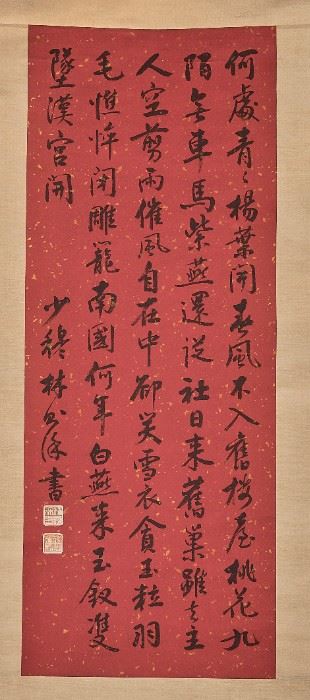 何處青〻楊葉開春風不入舊樓臺桃花九
陌無車馬紫燕還從社日來舊巢雖在主
人空剪雨催風自在中卻笑雪衣貪玉粒羽
毛憔悴閉雕籠南國何年白燕來玉釵雙
墜漢宮開
少穆林則徐書